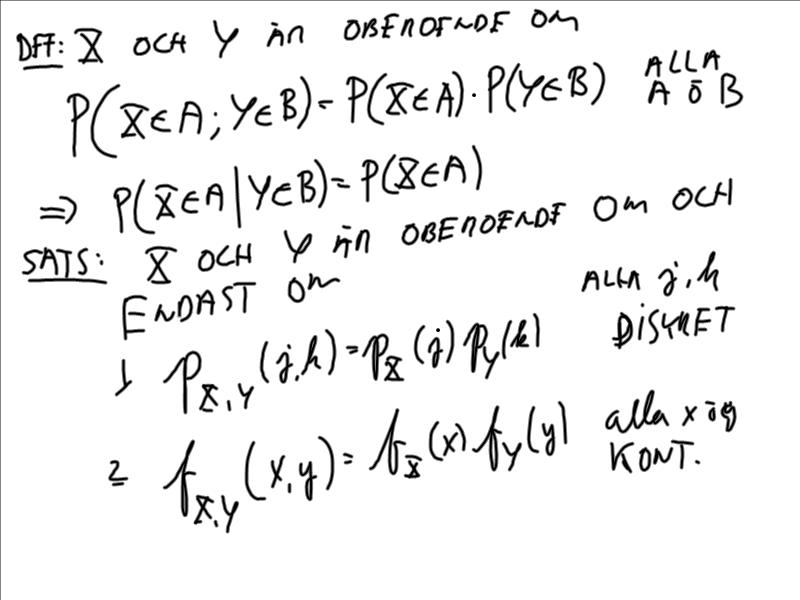 DEF: X OCH Y ÄR OBEROENDE OM
P(X∈A; Y∈B) = P(X∈A)·P(Y∈B) ALLA A Ö B
⇒ P(X∈A | Y∈B) = P(X∈A)
SATS: X OCH Y ÄR OBEROENDE OM OCH
ENDAST OM
1 p_{X,Y}(j,k) = p_X(j) p_Y(k) ALLA j,k DISKRET
2 f_{X,Y}(x,y) = f_X(x) f_Y(y) alla x öy KONT.